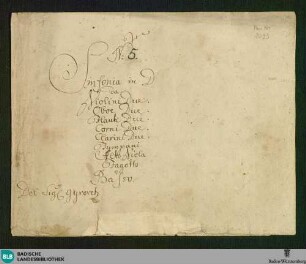 N. 5.
Sinfonia in D
Violini Due.
Oboe Due.
Flauti Due.
Corni Due.
Clarini Due.
Tympani
Viola
Fagotto
Basso
Del Sigl. Gyrowetz
BLB BADISCHE
LANDESBIBLIOTHEK
Baden-Württemberg